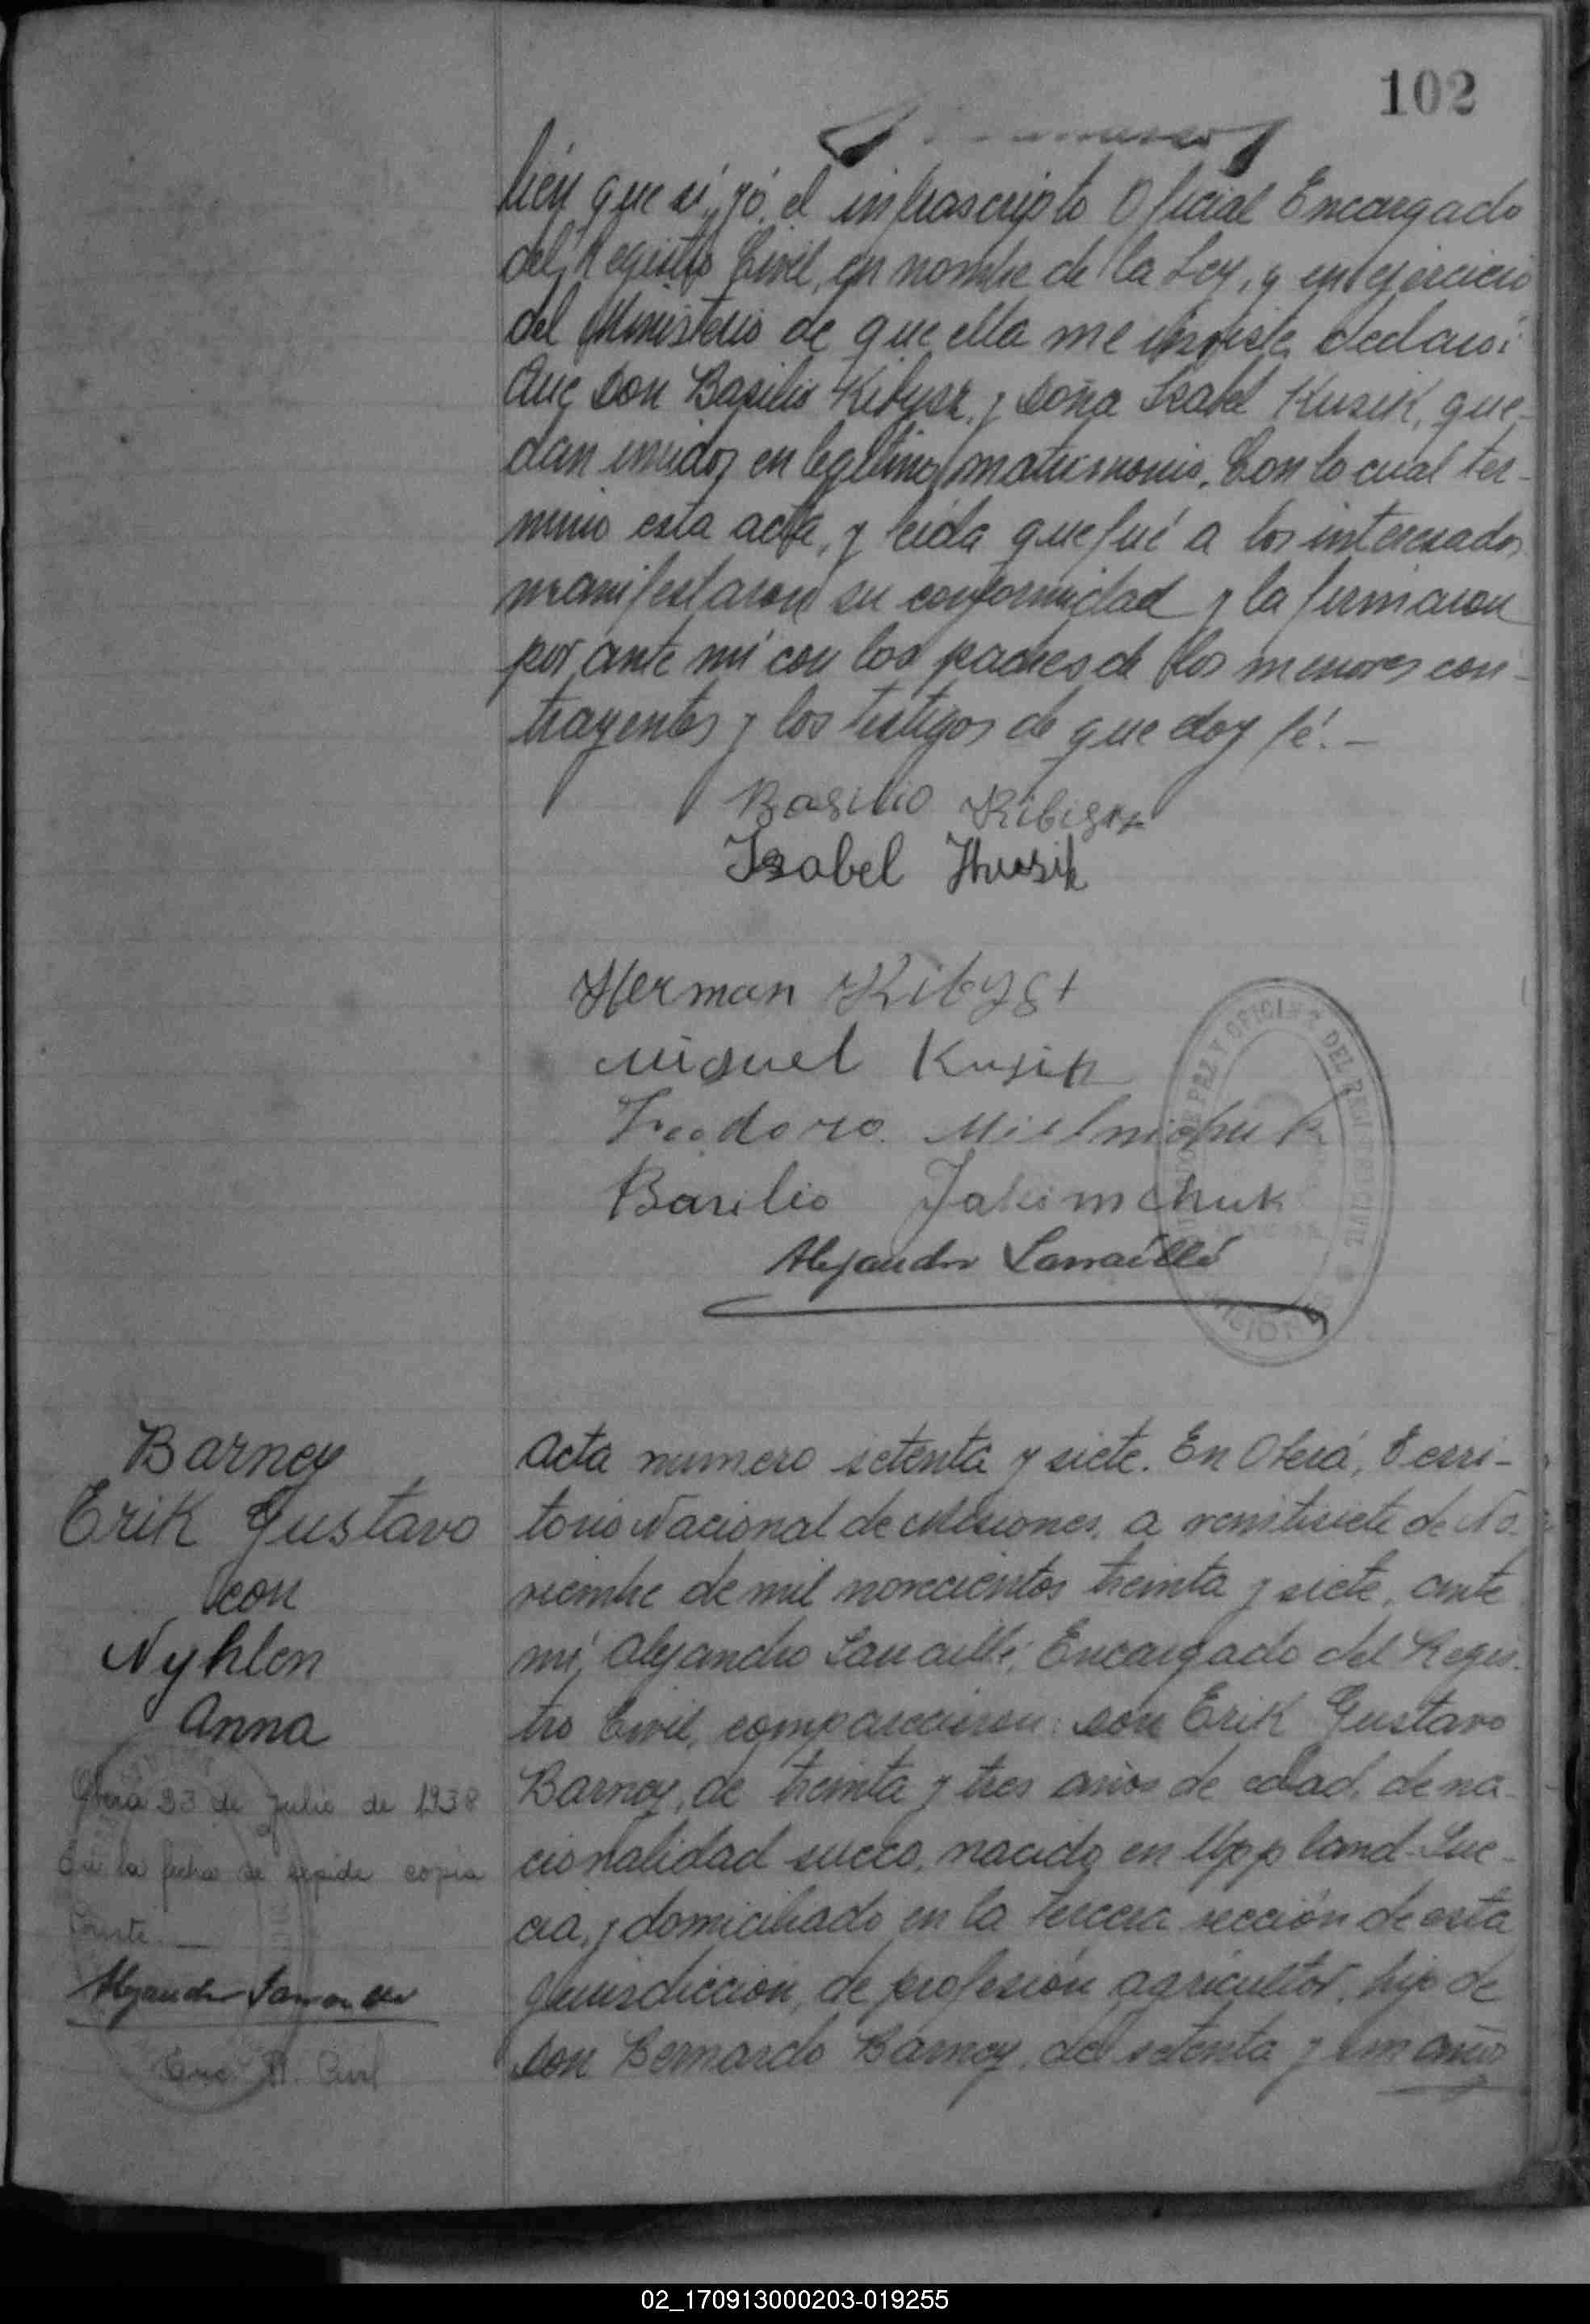 102
bién que sí, yó, el infrascripto Oficial Encargado
del Registro Civil, en nombre de la Ley, y en ejercicio
del Ministerio de que ella me inviste, declaré:
Que Don Basilio Kibysz, y Doña Isabel Kusik, que-
dan unidos en legítimo matrimonio. Con lo cual ter-
minó esta acta, y leída que fué a los interesados
manifestaron su conformidad y la firmaron
por ante mí con los padres de los menores con-
trayentes y los testigos de que doy fé.—
Basilio Kibisz
Isabel Kusik
Herman Kibyst
Miguel Kusik
Teodoro Mielnichuk
Basilio Jakimchuk
Alejandro Larraillé
OFICINA DEL REGISTRO CIVIL
Barney
Erik Gustavo
con
Nyhlen
Anna
Oberá 23 de Julio de 1938
En la fecha se expide copia
Conste.—
Alejandro Larraillé
Enc. R. Civil
Acta numero setenta y siete. En Oberá, Terri-
torio Nacional de Misiones, a veintisiete de No-
viembre de mil novecientos treinta y siete, ante
mí, Alejandro Larraillé, Encargado del Regis-
tro Civil, comparecieron: Don Erik Gustavo
Barney, de treinta y tres años de edad, de na-
cionalidad sueco, nacido en Uppland-Sue-
cia, y domiciliado en la tercera sección de esta
Jurisdicción, de profesión agricultor, hijo de
Don Bernardo Barney, de setenta y un años
02_170913000203-019255